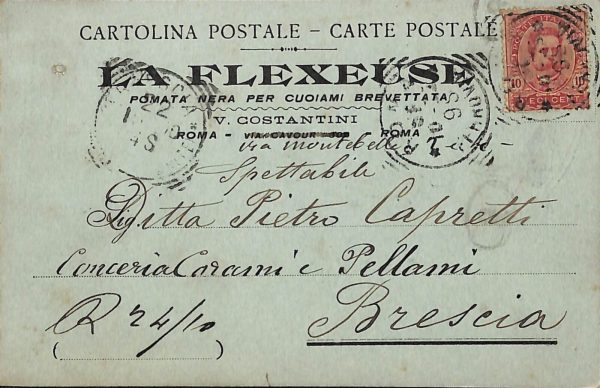 CARTOLINA POSTALE – CARTE POSTALE
LA FLEXEUSE
POMATA NERA PER CUOIAMI BREVETTATA
V. COSTANTINI
ROMA – VIA CAVOUR – ROMA
via Montebello
Spettabile
Sig. Ditta Pietro Capretti
Conceria Corami e Pellami
Brescia
R 24/10
( )